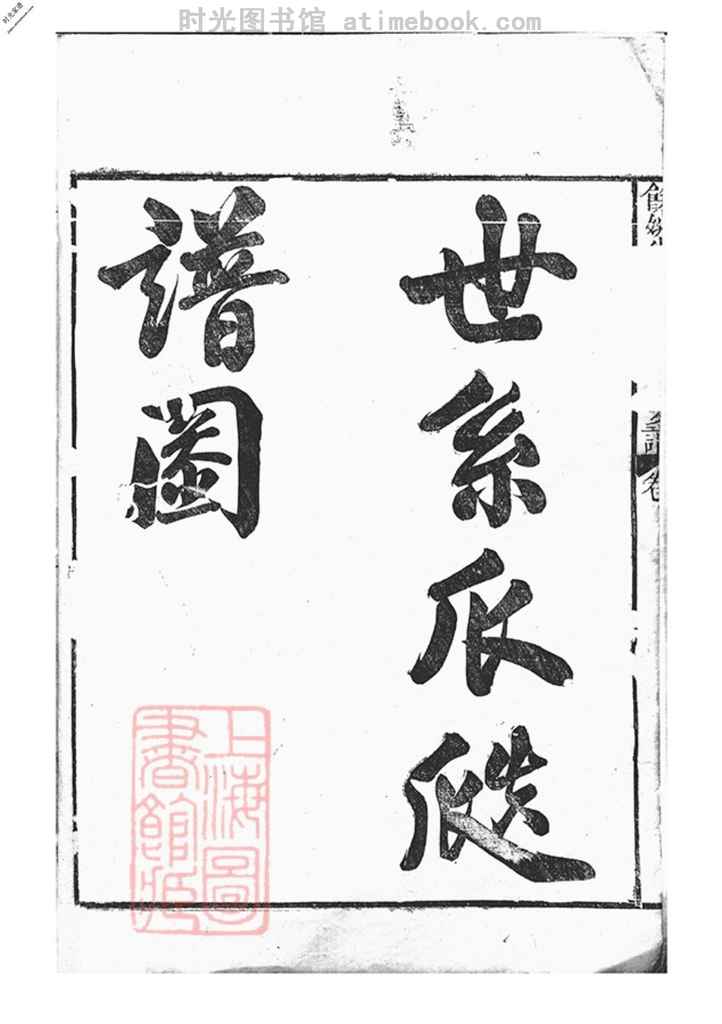 时光图书馆 atimebook.com
世系瓜瓞
譜圖
上海圖
書館藏